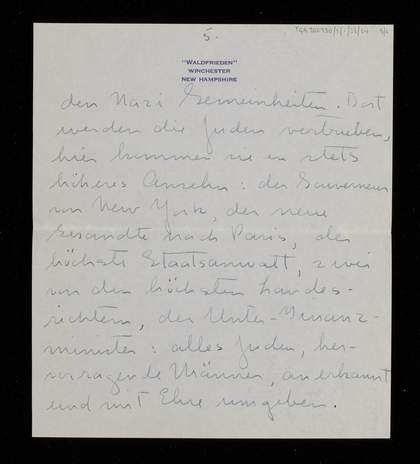 5.
TGA 200730/2/1/35/24 5/6
"WALDFRIEDEN"
WINCHESTER
NEW HAMPSHIRE
den Nazi Gemeinheiten. Dort
werden die Juden vertrieben,
hier kommen sie in stets
höheres Ansehn: der Gouverneur
von New York, der neue
Gesandte nach Paris, der
höchste Staatsanwalt, zwei
von den höchsten Landes-
richtern, der Unter-Finanz-
minister: alles Juden, her-
vorragende Männer, anerkannt
und mit Ehre umgeben.